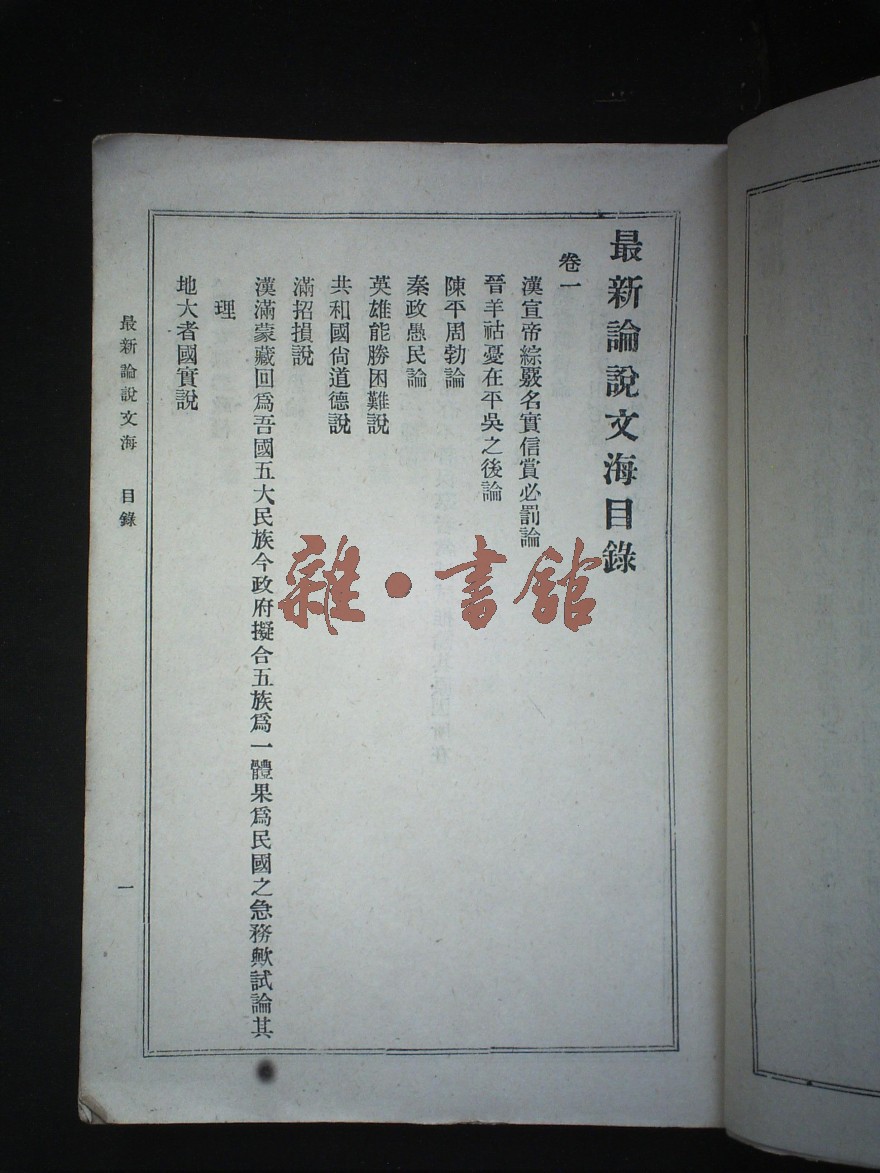 最新論說文海目錄
卷一
漢宣帝綜覈名實信賞必罰論
晉羊祜憂在平吳之後論
陳平周勃論
秦政愚民論
英雄能勝困難說
共和國尙道德說
滿招損說
漢滿蒙藏回爲吾國五大民族今政府擬合五族爲一體果爲民國之急務歟試論其
理
地大者國實說
最新論說文海 目錄
一
雜·書館